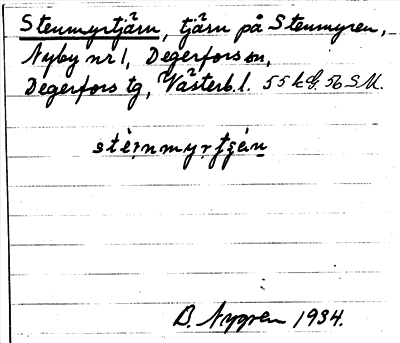 Stenmyrtjärn, tjärn på Stenmyren,
Nyby nr 1, Degerfors sn,
Degerfors tg, Västerb.l. 55 k G. 56 S M.
B. Nygren 1934.